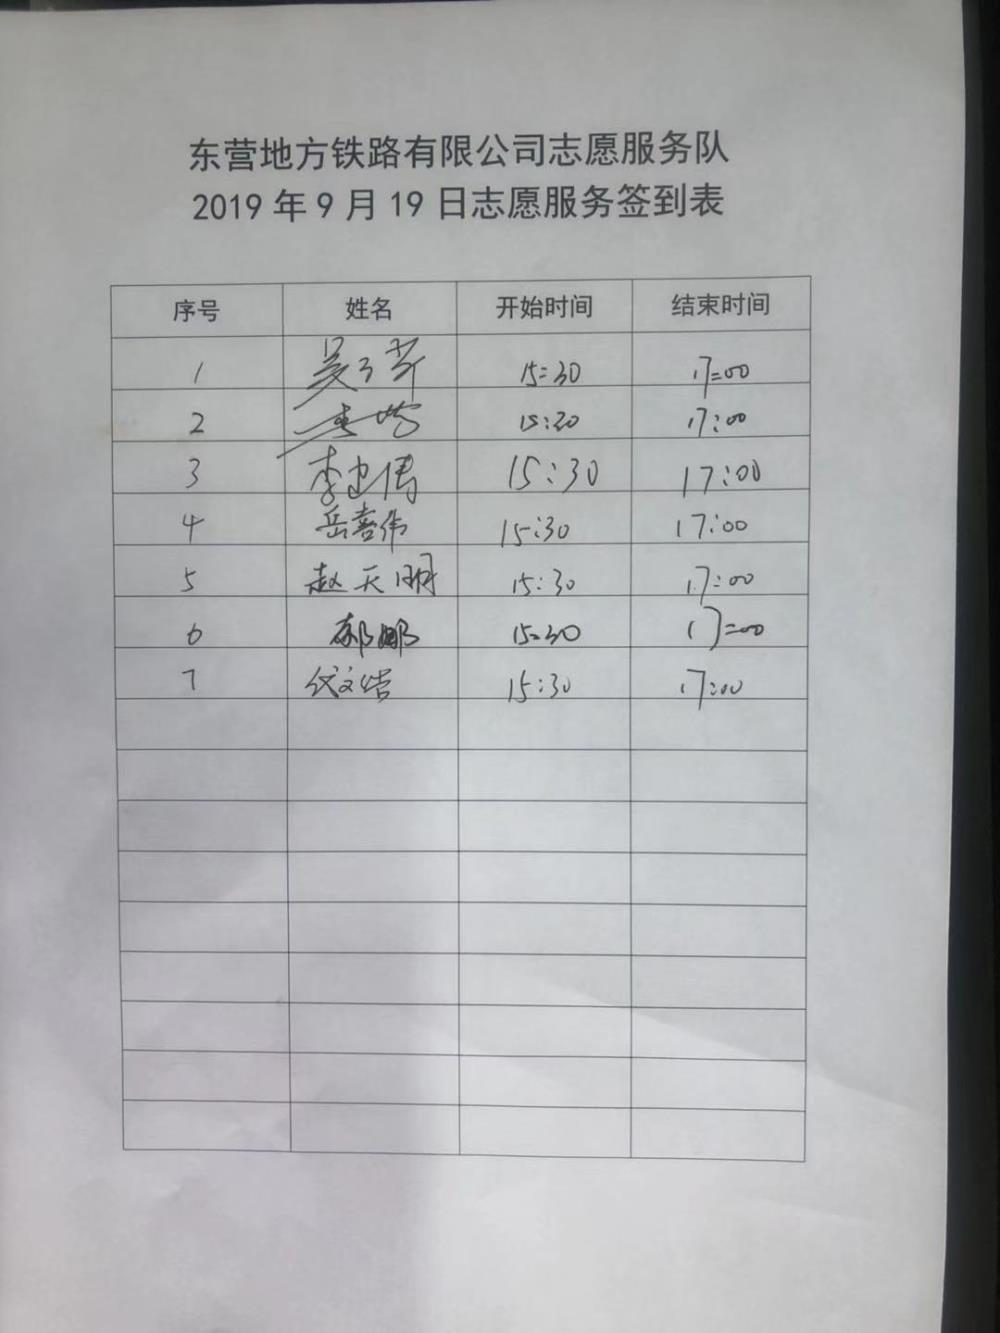 东营地方铁路有限公司志愿服务队
2019 年 9 月 19 日志愿服务签到表
序号 姓名 开始时间 结束时间
1 15:30 17:00
2 15:30 17:00
3 李建伟 15:30 17:00
4 岳喜伟 15:30 17:00
5 赵天明 15:30 17:00
6 郝娜 15:30 17:00
7 15:30 17:00